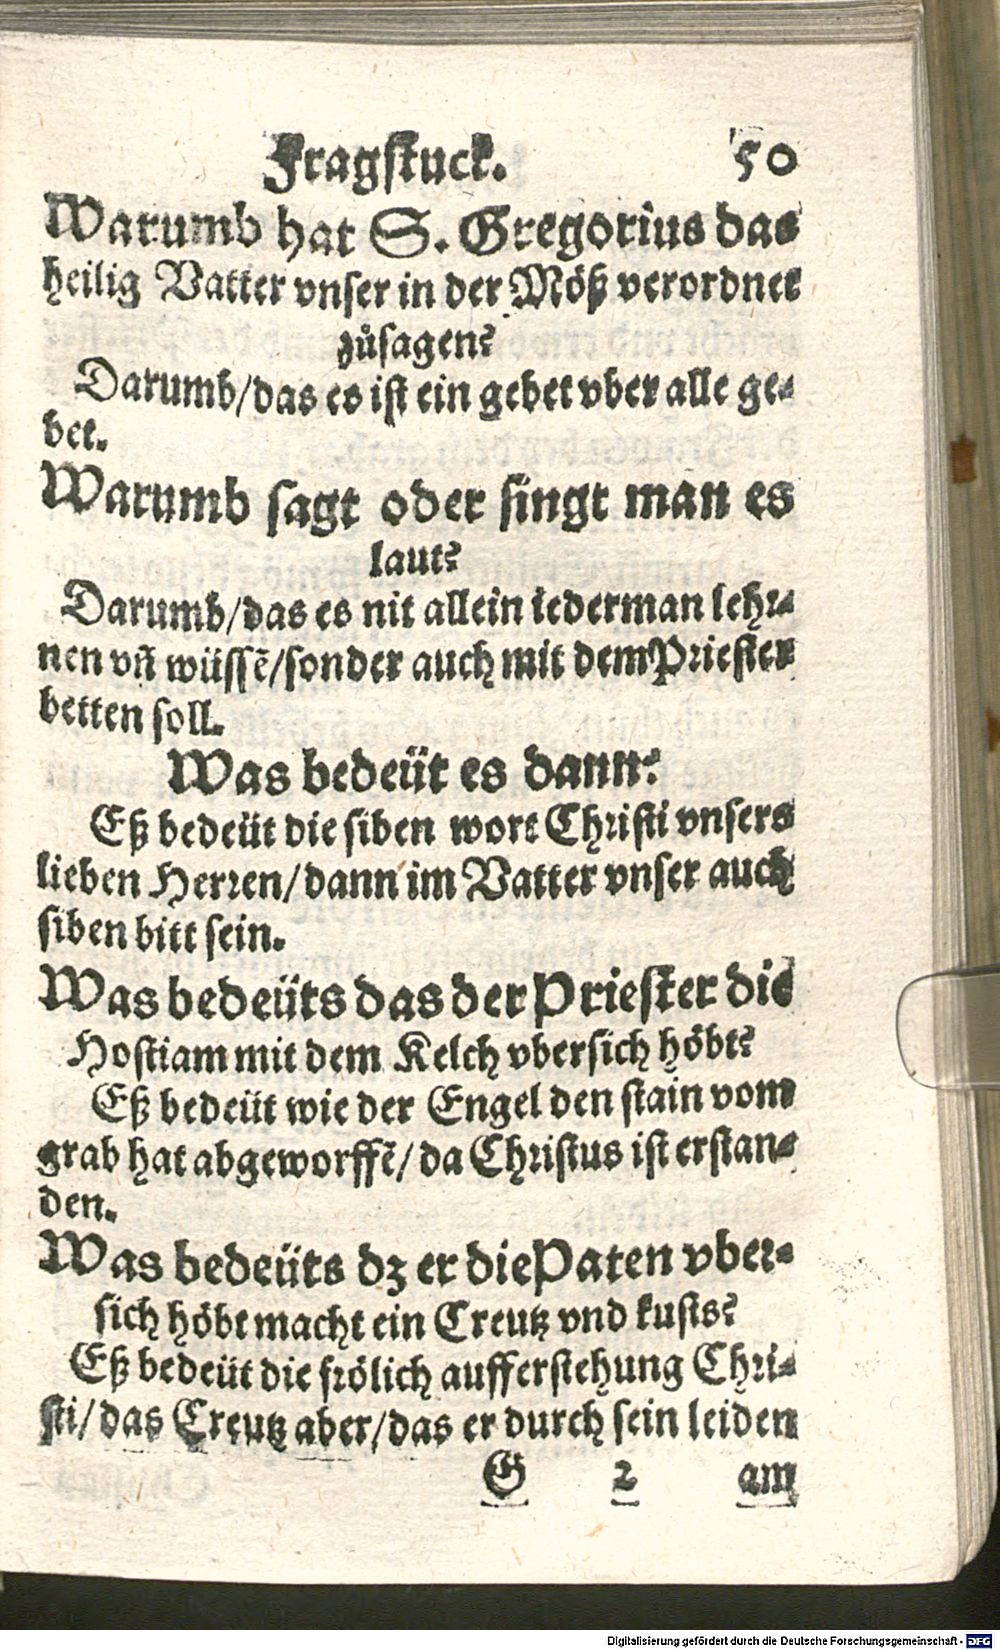 Fragſtuck. 50
Warumb hat S. Gregorius das
heilig Vatter vnſer in der Möß verordnet
zůſagen?
Darumb/das es iſt ein gebet vber alle ge-
bet.
Warumb ſagt oder ſingt man es
laut?
Darumb/das es nit allein iederman lehr-
nen vñ wüſſē/ſonder auch mit dem Prieſter
betten ſoll.
Was bedeüt es dann?
Eß bedeüt die ſiben wort Chriſti vnſers
lieben Herren/dann im Vatter vnſer auch
ſiben bitt ſein.
Was bedeüts das der Prieſter die
Hoſtiam mit dem Kelch vberſich höbt?
Eß bedeüt wie der Engel den ſtain vom
grab hat abgeworffē/da Chriſtus iſt erſtan-
den.
Was bedeüts dz er die Paten vber-
ſich höbt macht ein Creutz vnd kuſts?
Eß bedeüt die frölich aufferſtehung Chri-
ſti/das Creutz aber/das er durch ſein leiden
G 2 am
Digitalisierung gefördert durch die Deutsche Forschungsgemeinschaft - DFG